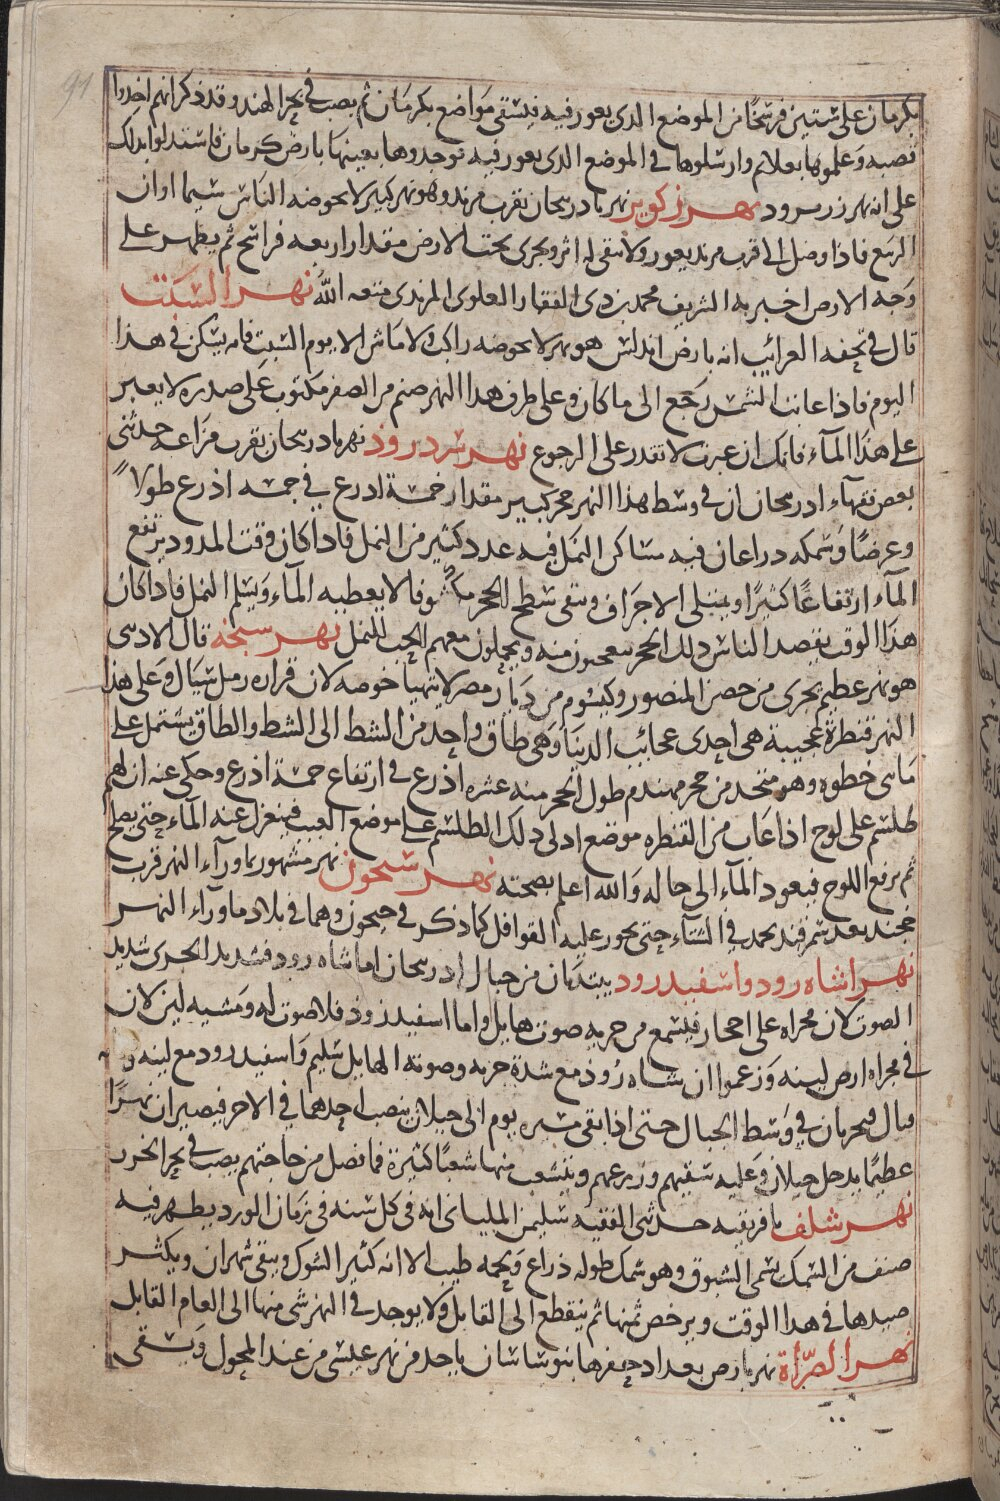 بكرمان على ستين فرسخا من الموضع الدى يعور فيه فيسقى مواضع بكرمان ثم يصب في بحر الهند وقد ذكر انهم اخدوا
قصبه وعلموها بعلايم وارسلوها في الموضع الدى يعور فيه فوجدوها بعينها بارض كرمان فاستدلوا بدلك
على انه نهر زرىىرود نهر زكوير نهر بادربيجان بقرب مرند وهو نهر كبير لا يخوضه الناس سيما اوان
الربيع فاذا وصل الى قرب مرند يعور ولا يبقى له اثر ويجرى تحت الارض مقدار اربعه فراسخ ثم يظهر على
وجه الارض اخبر به الشريف محمد بن دى الفقار العلوى المرندى متعه الله نهر السبت
قال في تحفه الغرائب انه بارض اندلس هو نهر لا يخوضه راكب ولا ماش الا يوم السبت فانه يسكن في هذا
اليوم فاذا غابت الشمس رجع الى ما كان وعلى طرف هدا النهر صنم من الصفر مكتوب على صدره لا يعبر
على هذا المآء فانك ان عبرت لا تقدر على الرجوع نهر سردرود نهر بادربيجان بقرب مراغه حدثنى
بعض فقهآء ادربيجان ان في وسط هذا النهر حجر كبير مقدار خمسة ادرع في خمسه اذرع طولا
وعرضا وسمكه دراعان فيه مساكن النمل فيه عدد كثير من النمل فاداكان وقت المدود يرتفع
المآء ارتفاعا كثيرا ويمتلى الاجراف ويبقى سطح الحجر مكشوفا لا يعطيه المآء ويسلم النمل فاداكان
هذا الوقت يقصد الناس دلك الحجر يتعجبون منه ويحملون معهم الحب للنمل نهر سنجه قال الاديبى
هو نهر عظيم يجرى من حصن المنصور وكيسوم من ديار مضر لا يتهيا خوضه لان قراره رمل سيال وعلى هذا
النهر قنطرة عجيبة هى احدى عجائب الدنيا وهى طاق واحد من الشط الى الشط والطاق يشتمل على
مايتى خطوه وهو متخد من حجر مهندم طول الحجر منه عشره اذرع في ارتفاع خمسة اذرع وحكى عنه ان لهم
طلسم على لوح اذا عاب من القنطره موضع ادلى دلك الطلسم على موضع العيب فينعزل عنه المآء حتى يصلح
ثم يرفع اللوح فيعود المآء الى حاله والله اعلم بصحته نهر سيحون نهر مشهور بما ورآء النهر قرب
خجند بعد سمرقند يجمد في الشتآء حتى يجوز عليه القوافل كما ذكر في جيحون وهما في بلاد ما ورآء النهر
نهرا شاه رود واسفيد رود يبتدئان من جبال ادربيجان اما شاه رود فشديد الجرى شديد
الصوت كان مجراه على احجار فيسمع من جريه صوت هايل واما اسفيدرود فلا صوت له ومشيه لين كان
في مجراه ارض لينه وزعموا ان شاه رود مع شدة جريه وصوته الهايل سليم واسفيدرود مع لينه
قتال فيجريان في وسط الجبال حتى اذا بقى مسيره يوم الى جيلان ينصب احدهما في الاخر فيصيران نهرا
عظيما يدخل جيلان وعليه سقيهم وزرعهم ويتشعب منها شعبا كثيرة فما فضل من حاجتهم يصب في بحر الخزر
نهر شلف بافريقيه حدثنى الفقيه سليمن الملياني انه في كل سنه في زمان الورد يظهر فيه
صنف من السمك يسمى الشبوق وهو سمك طوله ذراع ولحمه طيب الا انه كثير الشوك ويبقى شهران ويكثر
صيدها في هدا الوقت ويرخص ثمنها ثم ينقطع الى القابل ولا يوجد في النهر شى منها الى العام القابل
نهر الصراة نهر بارض بعداد حفرها بنو ساسان ياخد من نهر عيسى من عند المحول ويسقى